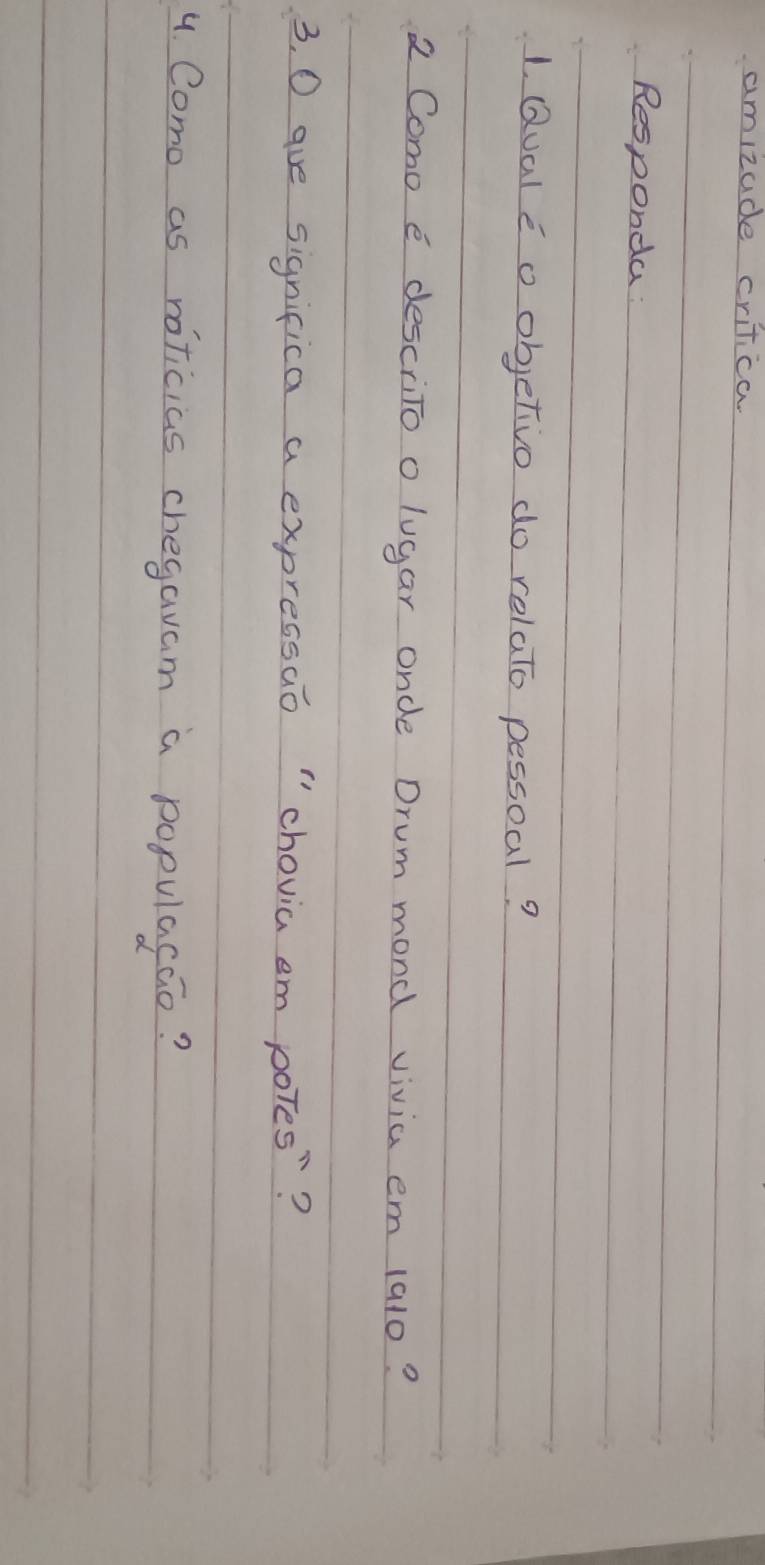 amizade crítica
Responda:
1. Qual é o objetivo do relato pessoal?
2 Como é descrito o lugar onde Drummond vivia em 1910?
3. O que significa a expressão "chovia em potes"?
4. Como as notícias chegavam à população?